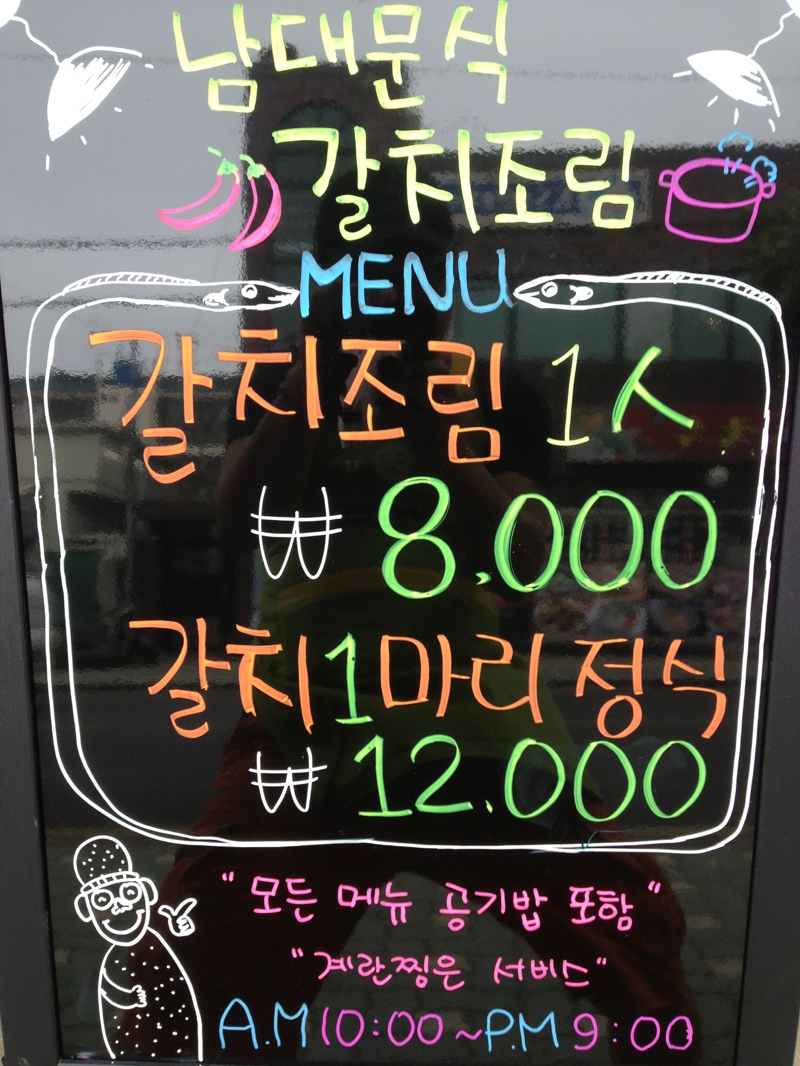 남대문식
갈치조림
MENU
갈치조림 1人
₩ 8.000
갈치1마리 정식
₩ 12.000
"모든 메뉴 공기밥 포함"
"계란찡은 서비스"
A.M 10:00~P.M 9:00